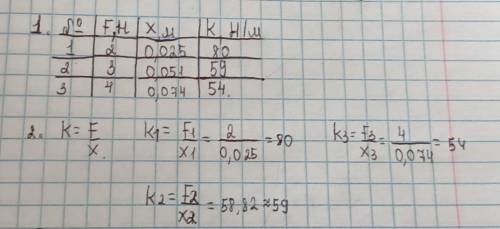 1. № F,H X,м K, H/м
1 2 0,025 80
2 3 0,051 59
3 4 0,074 54.
2. K = F/X. K1 = F1/X1 = 2/0,025 = 80 K3 = F3/X3 = 4/0,074 = 54
K2 = F2/X2 = 58,82 ≈ 59